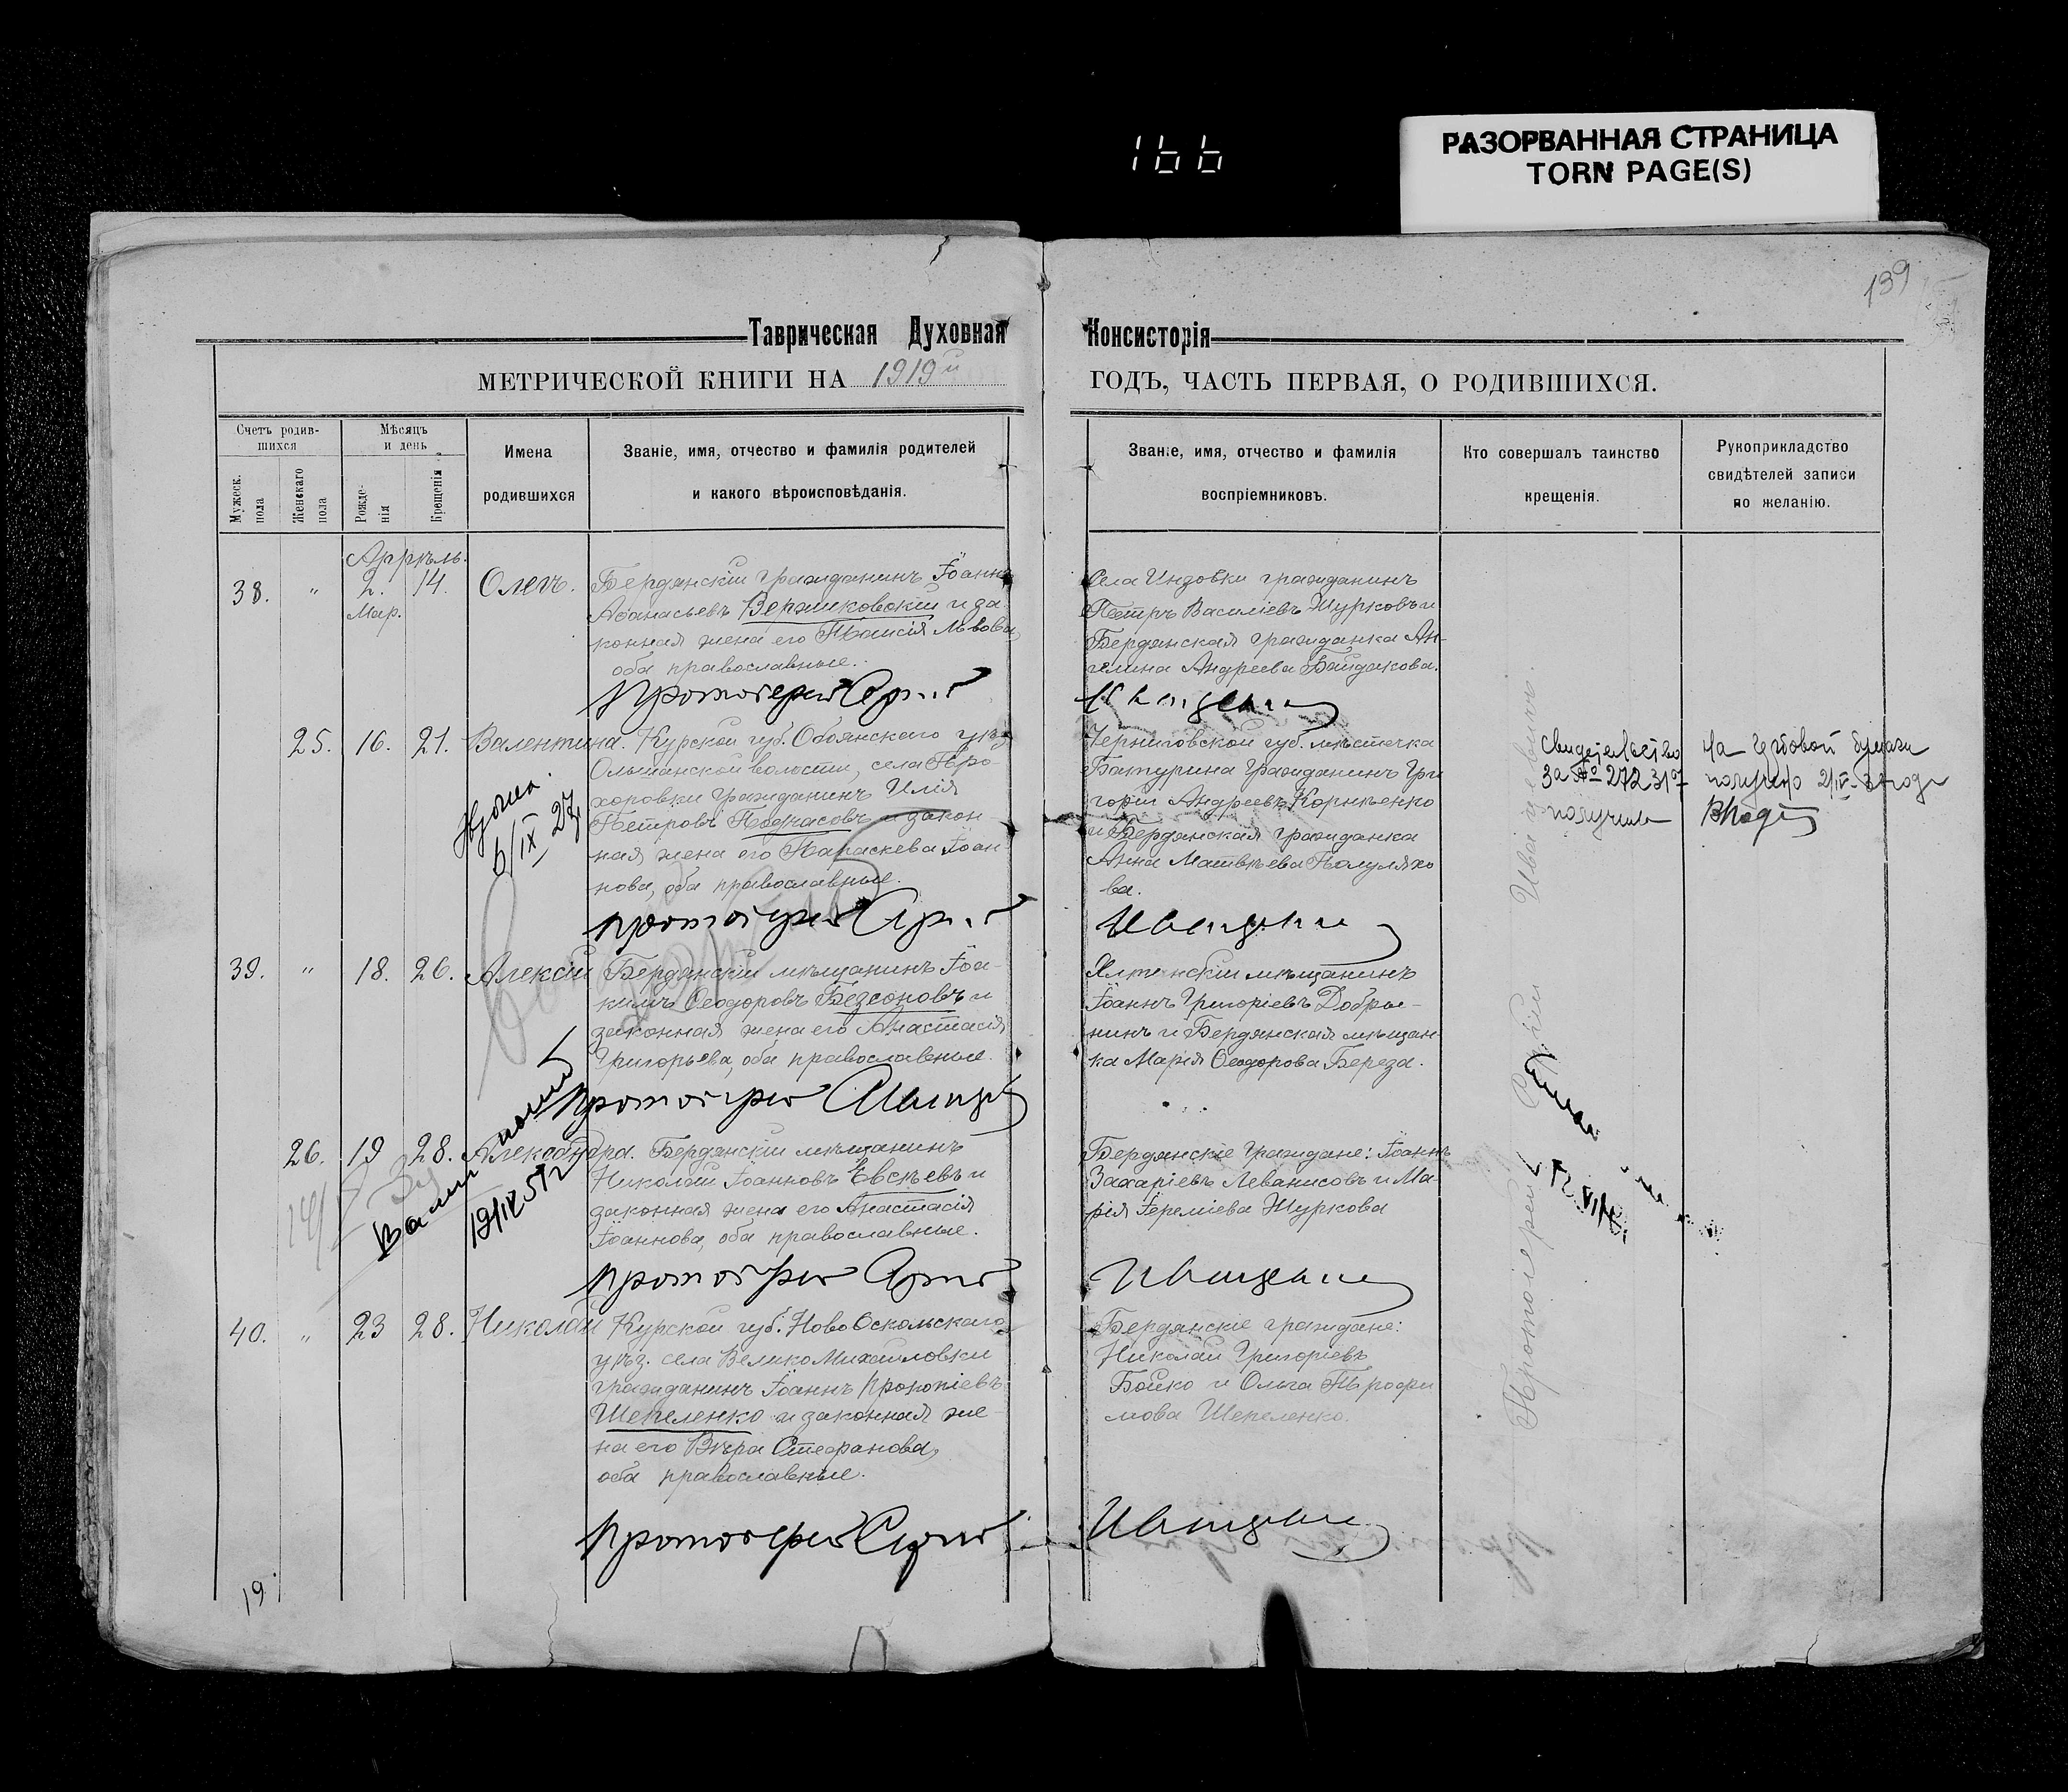 166
РАЗОРВАННАЯ СТРАНИЦА
TORN PAGE(S)
139
Таврическая Духовная Консисторія
МЕТРИЧЕСКОЙ КНИГИ НА 1919й ГОДЪ, ЧАСТЬ ПЕРВАЯ, О РОДИВШИХСЯ.
Счетъ родив-
шихся
Мужеск.
пола
Женскаго
пола
Мѣсяцъ
и день
Рожде-
нія
Крещенія
Имена
родившихся
Званіе, имя, отчество и фамилія родителей
и какого вѣроисповѣданія.
Званіе, имя, отчество и фамилія
воспріемниковъ.
Кто совершалъ таинство
крещенія.
Рукоприкладство
свидѣтелей записи
по желанію.
Апрѣль.
38. " 2. 14. Олегъ.
Мар.
Бердянскій гражданинъ Іоаннъ
Аѳанасьевъ Вержиковскій и за-
конная жена его Таисія Львова,
оба православные.
Протоіерей Сергій
Села Индовки гражданинъ
Петръ Василіевъ Журковъ и
Бердянская гражданка Ан-
гелина Андреева Байдакова.
Иваицевичъ
25. 16. 21. Валентина.
Курской губ. Обоянскаго уѣз.
Ольшанской волости, села Про-
хоровки гражданинъ Илія
Петровъ и закон-
ная жена его Параскева Іоан-
нова, оба православные.
Протоіерей Сергій
6/IX 27
Черниговской губ. мѣстечка
Батурина гражданинъ Гри
горій Андреевъ Корнѣенко
и Бердянская гражданка
Анна Матвѣева Полуляхо
ва.
Иваицевичъ
Свидетельство
за № 272 31 г
получила
На гербовой бумаги
получено 2/IV-32 года
39. " 18. 26. Алексій
Бердянскій мѣщанинъ Іоа-
кимъ Ѳеодоровъ Безсоновъ и
законная жена его Анастасія
Григорьева, оба православные.
Протоіерей
Ялтинскій мѣщанинъ
Іоаннъ Григоріевъ Добры-
нинъ и Бердянская мѣщан-
ка Марія Ѳеодорова Береза.
26. 19 28. Александра.
Бердянскій мѣщанинъ
Николай Іоанновъ Евсѣевъ и
законная жена его Анастасія
Іоаннова, оба православные.
Протоіерей Сергій
Бердянскіе граждане: Іоаннъ
Захаріевъ Леванисовъ и Ма-
рія Іереміева Журкова
Иваицевичъ
40. " 23 28. Николай
Курской губ. НовоОскольскаго
уѣз. села ВеликоМихайловки
гражданинъ Іоаннъ Прокопіевъ
Шепеленко и законная же-
на его Вѣра Стефанова,
оба православные.
Протоіерей Сергій
Бердянскіе граждане:
Николай Григоріевъ
Бойко и Ольга Трофи
мова Шепеленко
Иваицевичъ
Протоіерей Сергій Иваицевичъ.
19